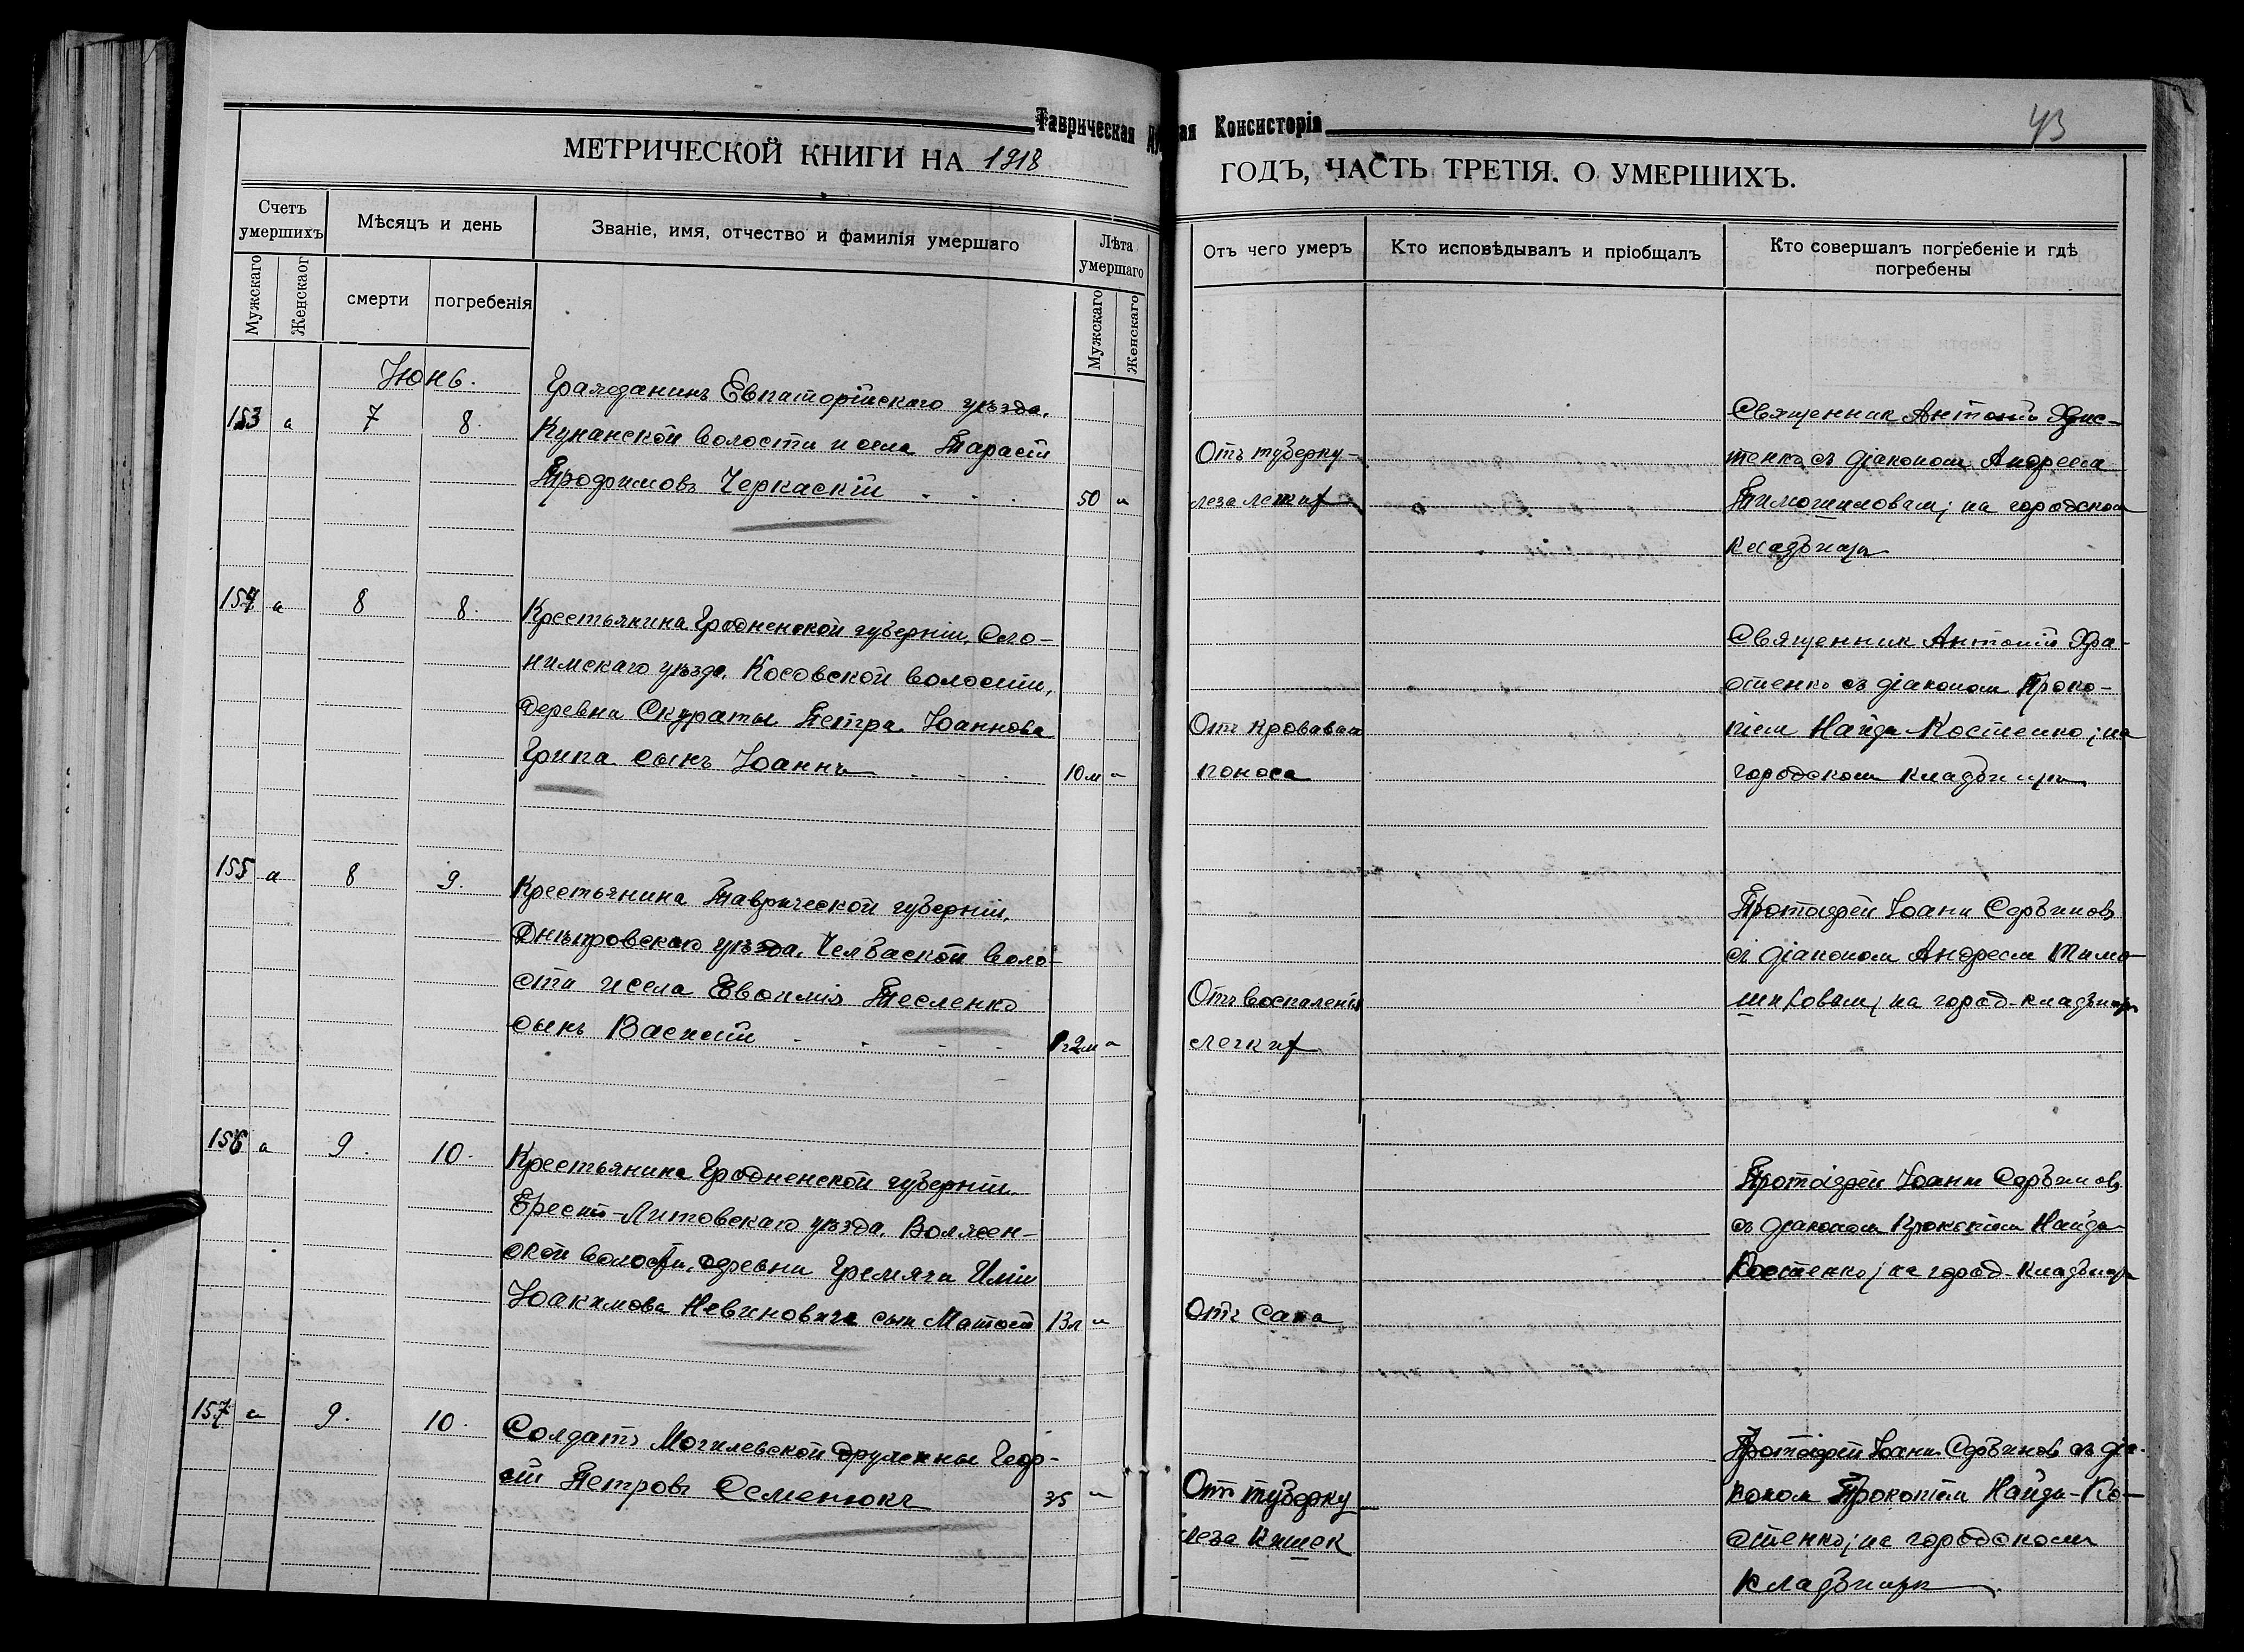 Таврическая ая Консисторія
43
МЕТРИЧЕСКОЙ КНИГИ НА 1918
ГОДЪ, ЧАСТЬ ТРЕТІЯ. О УМЕРШИХЪ.
Счетъ умершихъ
Мужскаго
Женскаог
Мѣсяцъ и день
смерти
погребенія
Званіе, имя, отчество и фамилія умершаго
Лѣта умершаго
Мужскаго
Женскаго
Отъ чего умеръ
Кто исповѣдывалъ и пріобщалъ
Кто совершалъ погребеніе и гдѣ погребены
Іюнь.
153 " 7 8.
Гражданинъ Евпаторійскаго уѣзда,
Кунанской волости и села Тарасій
Трофимовъ Черкаскій 50 "
Отъ туберку-
леза легких
Священник Антоній
тенко съ діаконом Андреем
Тимошиловым; на городском
кладбищѣ
154 " 8 8.
Крестьянина Гродненской губерніи, Сло-
нимскаго уѣзда, Косовской волости,
деревни Скураты Петра Іоаннова
Грипа сынъ Іоаннъ 10 м "
Отъ кроваваго
поноса
Священник Антоній
стенко съ діаконом Проко-
піем Найда-Костенко; на
городском кладбищѣ
155 " 8 9.
Крестьянина Таврической губерніи,
Днѣпровскаго уѣзда, Челбаской воло-
сти и села Евфимія Тесленко
сынъ Василій 1 г 2 м "
Отъ воспаленія
легких
Протоіерей Іоанн Сербинов
съ діаконом Андреем Тимо-
шиловым; на город. кладбищѣ
156 " 9. 10.
Крестьянина Гродненской губерніи,
Брест-Литовскаго уѣзда, Волжен-
ской волости, деревни Гремяча Иліи
Іоакимова Невиновича сын Матѳей 13 л "
Отъ сапа
Протоіерей Іоанн Сербинов
съ діаконом Прокопіем Найда-
Костенко; на город. кладбищѣ
157 " 9. 10.
Солдатъ Могилевской дружины Геор-
гій Петровъ Семенюкъ 35 "
От туберку
леза кишек
Протоіерей Іоанн Сербинов съ діа-
коном Прокопіем Найда-Ко-
стенко; на городском
кладбищѣ